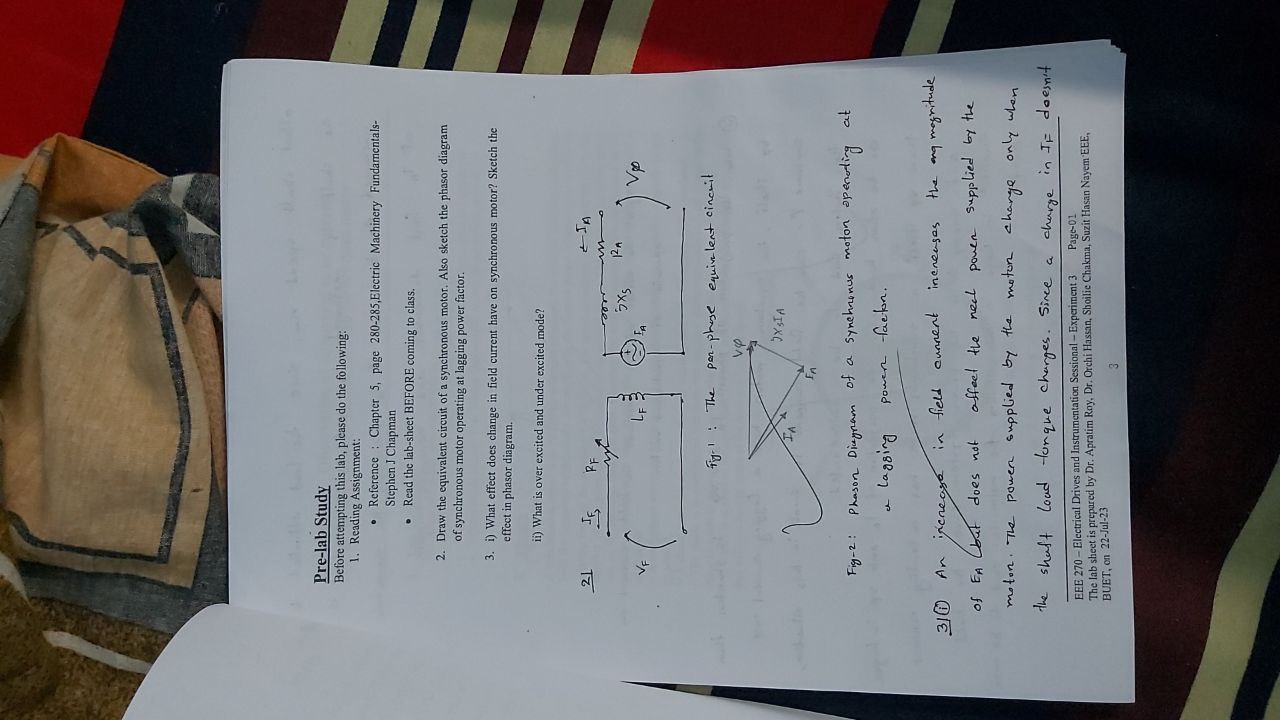 Pre-lab Study
Before attempting this lab, please do the following:
1. Reading Assignment:
• Reference : Chapter 5, page 280-285,Electric Machinery Fundamentals-
Stephen J Chapman
• Read the lab-sheet BEFORE coming to class.
2. Draw the equivalent circuit of a synchronous motor. Also sketch the phasor diagram
of synchronous motor operating at lagging power factor.
3. i) What effect does change in field current have on synchronous motor? Sketch the
effect in phasor diagram.
ii) What is over excited and under excited mode?
2| IF RF ←IA
VF LF EA jXS RA Vφ
Fig-1 : The per-phase equivalent circuit
Vφ
IA jXSIA
EA
Fig-2: Phasor Diagram of a synchronus motor operating at
a lagging power factor.
3|(i) An increase in field current increases the magnitude
of EA but does not affect the real power supplied by the
motor. The power supplied by the motor change only when
the shaft load torque charges. Since a charge in IF doesn't
EEE 270 – Electrical Drives and Instrumentation Sessional – Experiment 3 Page-01
The lab sheet is prepared by Dr. Apratim Roy, Dr. Orchi Hassan, Shoilie Chakma, Suzit Hasan Nayem EEE,
BUET, on 22-Jul-23
3